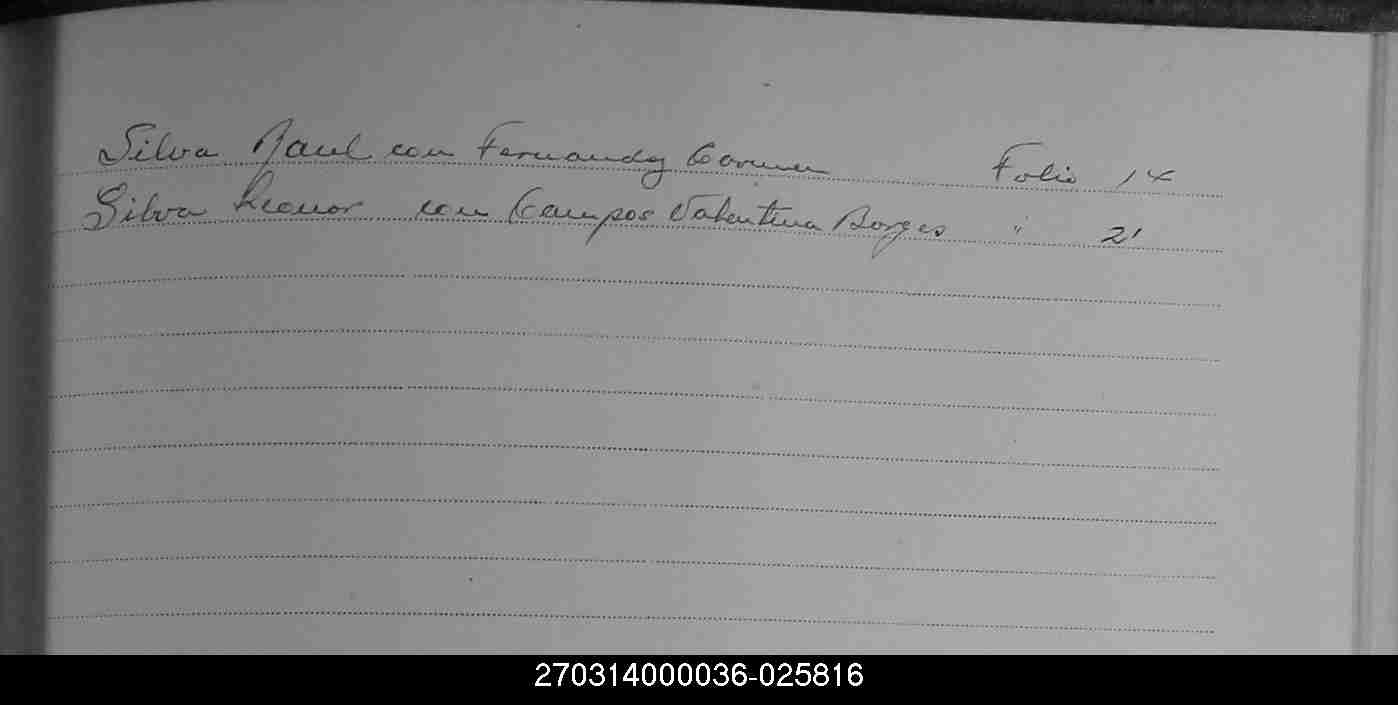 Silva Raul con Fernandez Carmen Folio 14
Silva Leonor con Campos Valentina Borges " 21
270314000036-025816